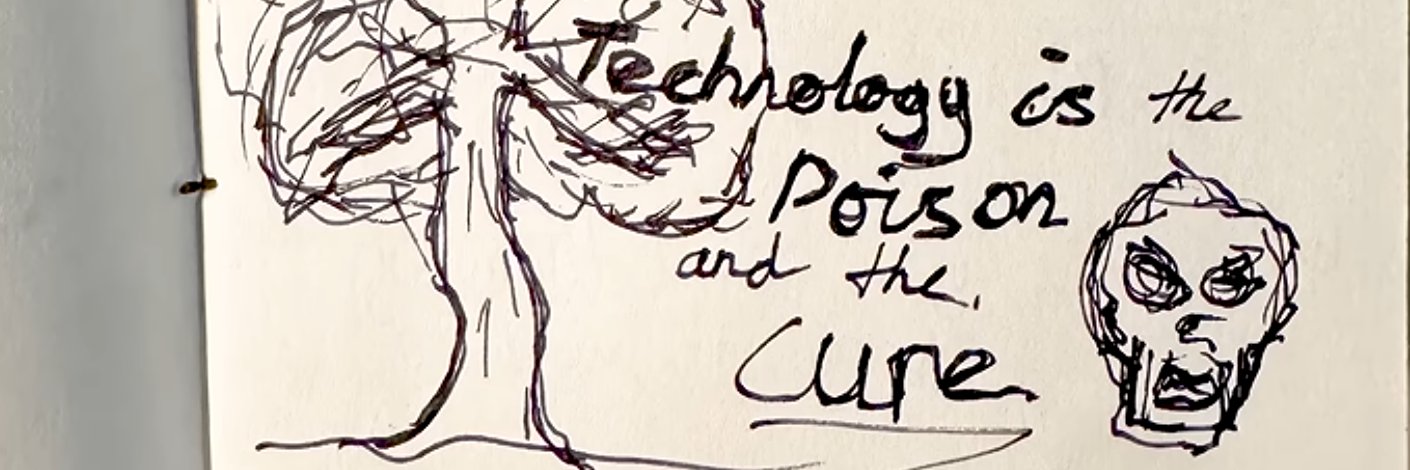 Technology is the
Poison
and the.
Cure